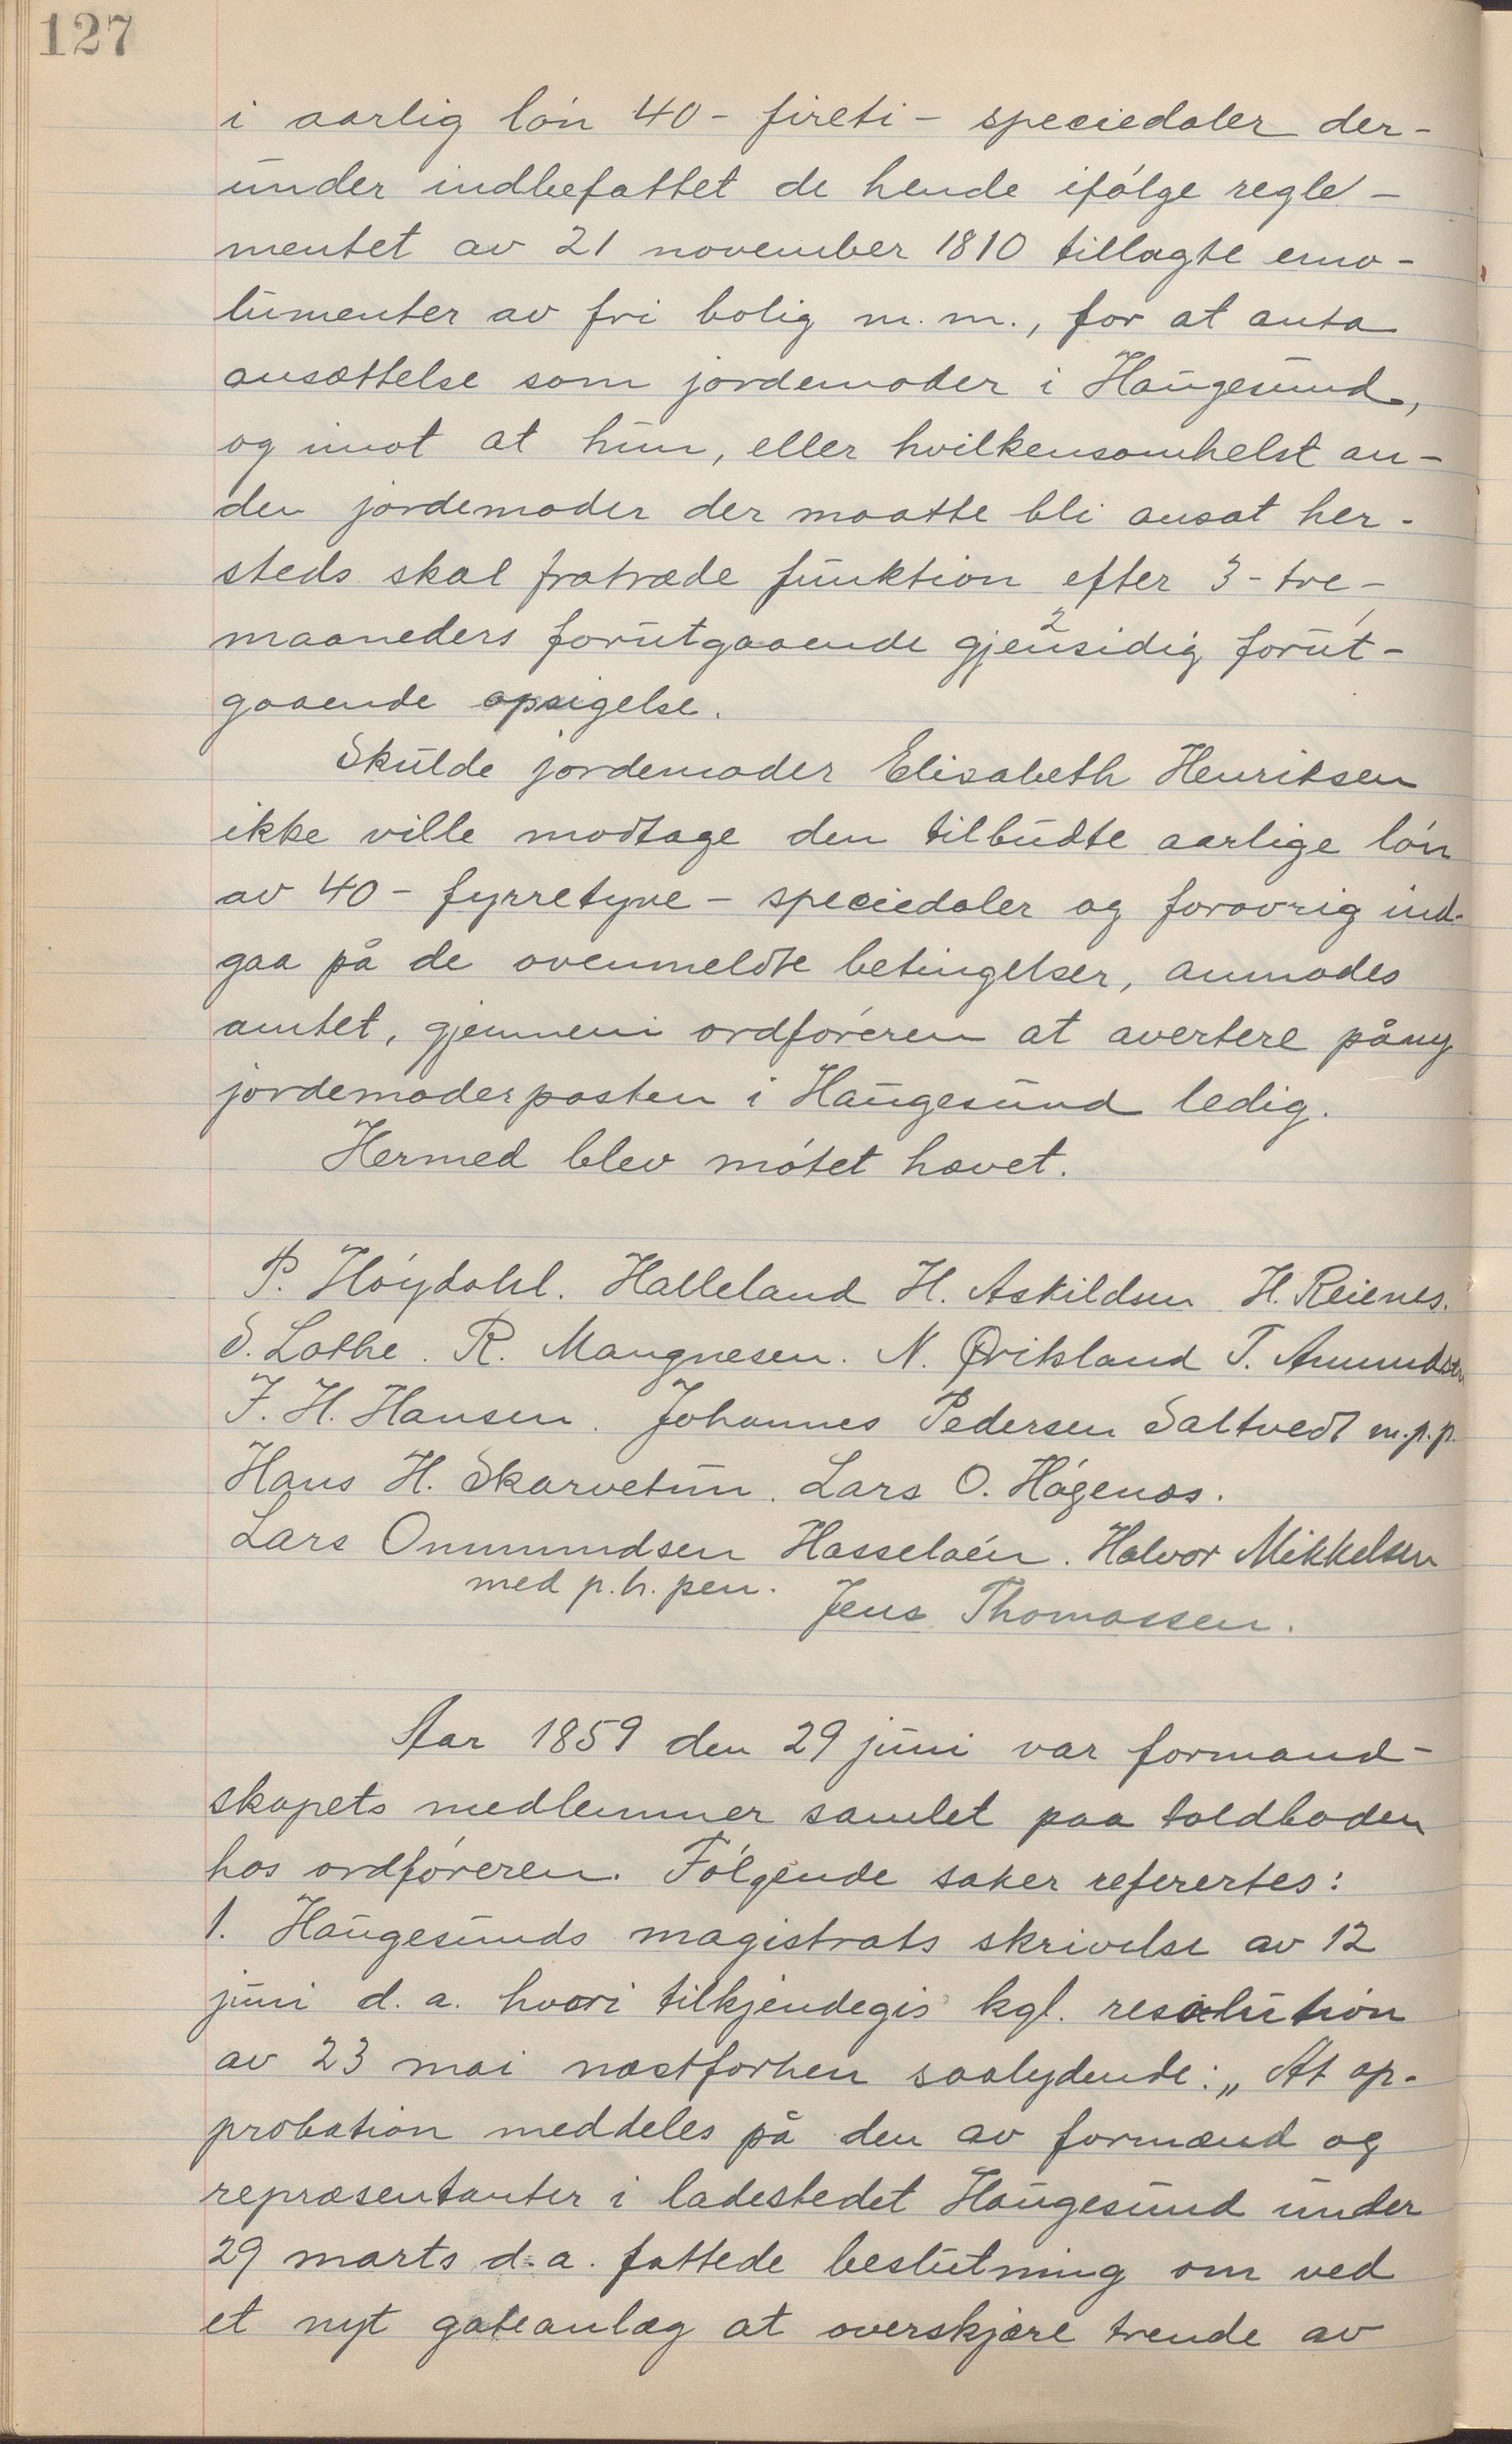 127
i aarlig løn 40 - fireti - speciedaler der-
under indbefattet de hende ifølge regle-
mentet av 21 november 1810 tillagte emo-
lumenter av fri bolig m.m., for at anta
ansættelse som jordemoder i Haugesund,
og imot at hun, eller hvilkensomhelst an-
den jordemoder der maatte bli ansat her-
steds skal fratræde funktion efter 3 - tre -
maaneders forutgaaende gjensidig forut-
gaaende opsigelse.
Skulde jordemoder Elisabeth Henriksen
ikke ville modtage den tilbudte aarlige løn
av 40 - fyrretyve - speciedaler og forøvrig ind-
gaa på de ovenmeldte betingelser, anmodes
amtet, gjennem ordføreren at avertere påny
jordemoderposten i Haugesund ledig.
Hermed blev møtet hævet.
P. Høydahl. Halleland H. Askildsen H. Reienes.
S. Lothe. R. Mangnesen. N. Ørikland T. Amundsen
J. H. Hansen. Johannes Pedersen Saltvedt m.p.p.
Hans H. Skarvetun. Lars O. Hågenæs.
Lars Ommundsen Hasseløen. Halvor Mikkelsen
med p.h. pen. Jens Thomassen.
Aar 1859 den 29 juni var formand-
skapets medlemmer samlet paa toldboden
hos ordføreren. Følgende saker refererte s:
1. Haugesunds magistrats skrivelse av 12
juni d.a. hvori tilkjendegis kgl. resolution
av 23 mai næstforhen saalydende: „At ap-
probation meddeles på den av formænd og
repræsentanter i ladestedet Haugesund under
29 marts d.a. fattede beslutning om ved
et nyt gateanlæg at overskjære trende av